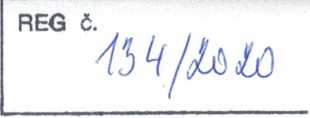 REG č.
134/2020